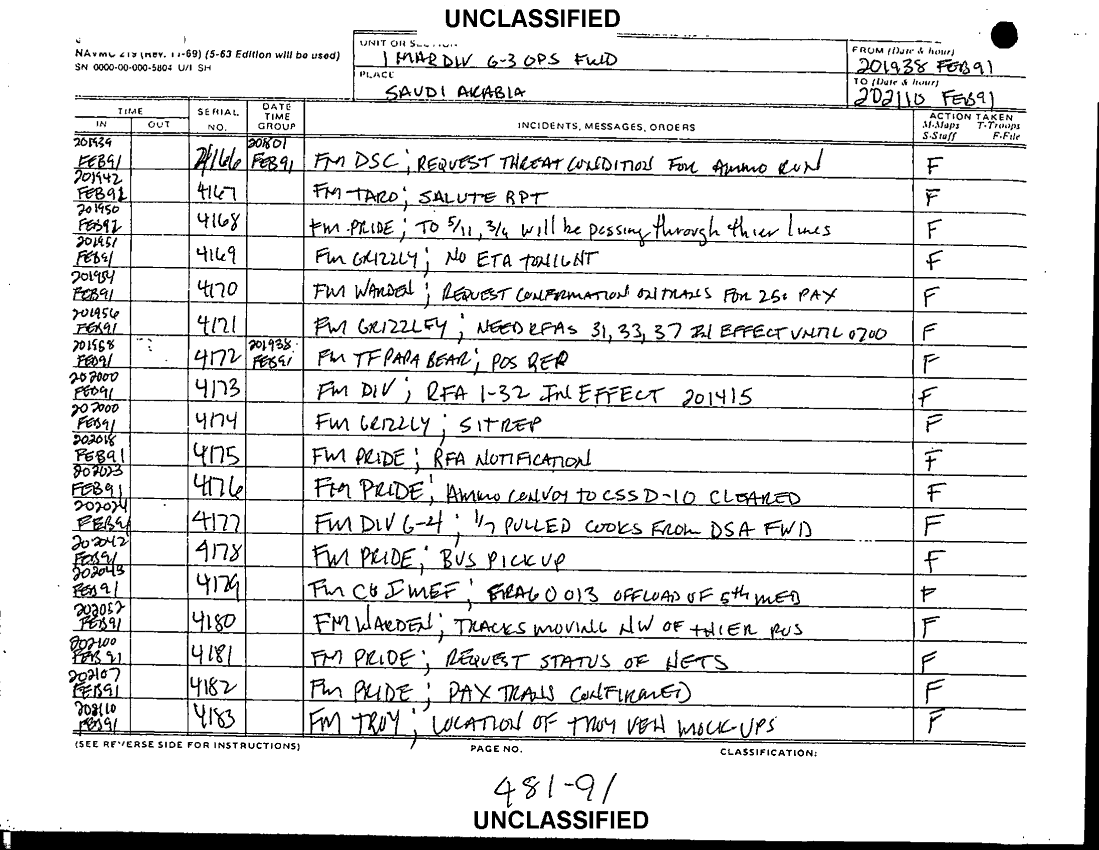 UNCLASSIFIED
NAVMC 219 (Rev. 11-69) (5-63 Edition will be used)
SN 0000-00-000-5804 U/I SH
UNIT OR SECTION
1 MAR DIV G-3 OPS FWD
PLACE
SAUDI ARABIA
FROM (Date & hour)
201938 FEB91
TO (Date & hour)
202110 FEB91
TIME IN OUT SERIAL NO. DATE TIME GROUP INCIDENTS, MESSAGES, ORDERS ACTION TAKEN M-Maps T-Troops S-Staff F-File
201939 FEB91 4166 201801 FEB91 FM DSC; REQUEST THREAT CONDITION FOR AMMO RUN F
201942 FEB91 4167 FM TARO; SALUTE RPT F
201950 FEB91 4168 FM PRIDE; TO 5/11, 3/6 will be passing through thier lines F
201951 FEB91 4169 FM GRIZZLY; NO ETA TONIGHT F
201954 FEB91 4170 FM WARDEN; REQUEST CONFIRMATION ON TRANS FOR 250 PAX F
201956 FEB91 4171 FM GRIZZLEY; NEED RFAS 31, 33, 37 IN EFFECT UNTIL 0700 F
201958 FEB91 4172 201938 FEB91 FM TF PAPA BEAR; POS REP F
202000 FEB91 4173 FM DIV; RFA 1-32 IN EFFECT 201415 F
202000 FEB91 4174 FM GRIZZLY; SITREP F
202018 FEB91 4175 FM PRIDE; RFA NOTIFICATION F
202023 FEB91 4176 FM PRIDE; AMMO CONVOY TO CSS D-10 CLEARED F
202024 FEB91 4177 FM DIV G-4; 1/7 PULLED COOKS FROM DSA FWD F
202042 FEB91 4178 FM PRIDE; BUS PICKUP F
202043 FEB91 4179 FM CG I MEF; FRAG O 013 OFFLOAD OF 5th MEB F
202052 FEB91 4180 FM WARDEN; TRACKS MOVING NW OF THIER POS F
202100 FEB91 4181 FM PRIDE; REQUEST STATUS OF NETS F
202107 FEB91 4182 FM PRIDE; PAX TRANS CONFIRMED F
202110 FEB91 4183 FM TROY; LOCATION OF TROY VEH MOCK-UPS F
(SEE REVERSE SIDE FOR INSTRUCTIONS) PAGE NO. CLASSIFICATION:
481-91
UNCLASSIFIED